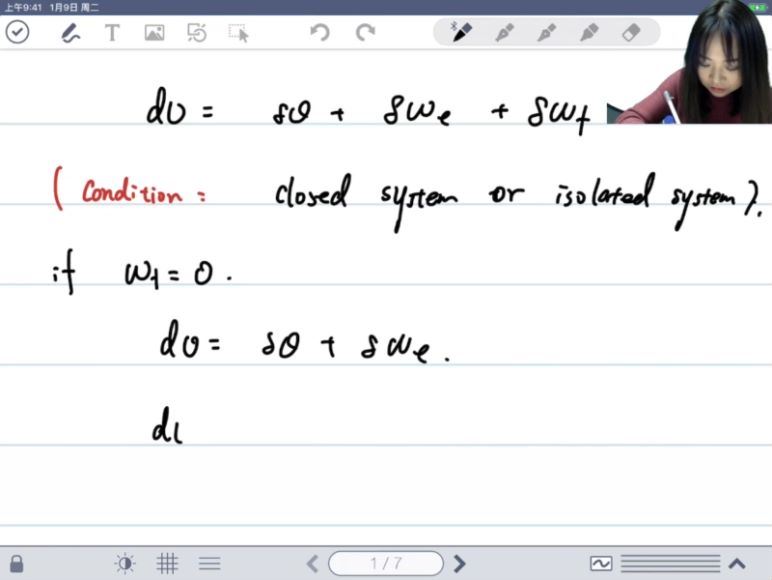 上午9:41 1月9日 周二
T
dU = δQ + δWe + δWf
(Condition: closed system or isolated system).
if Wf = 0.
dU = δQ + δWe.
d
1 / 7